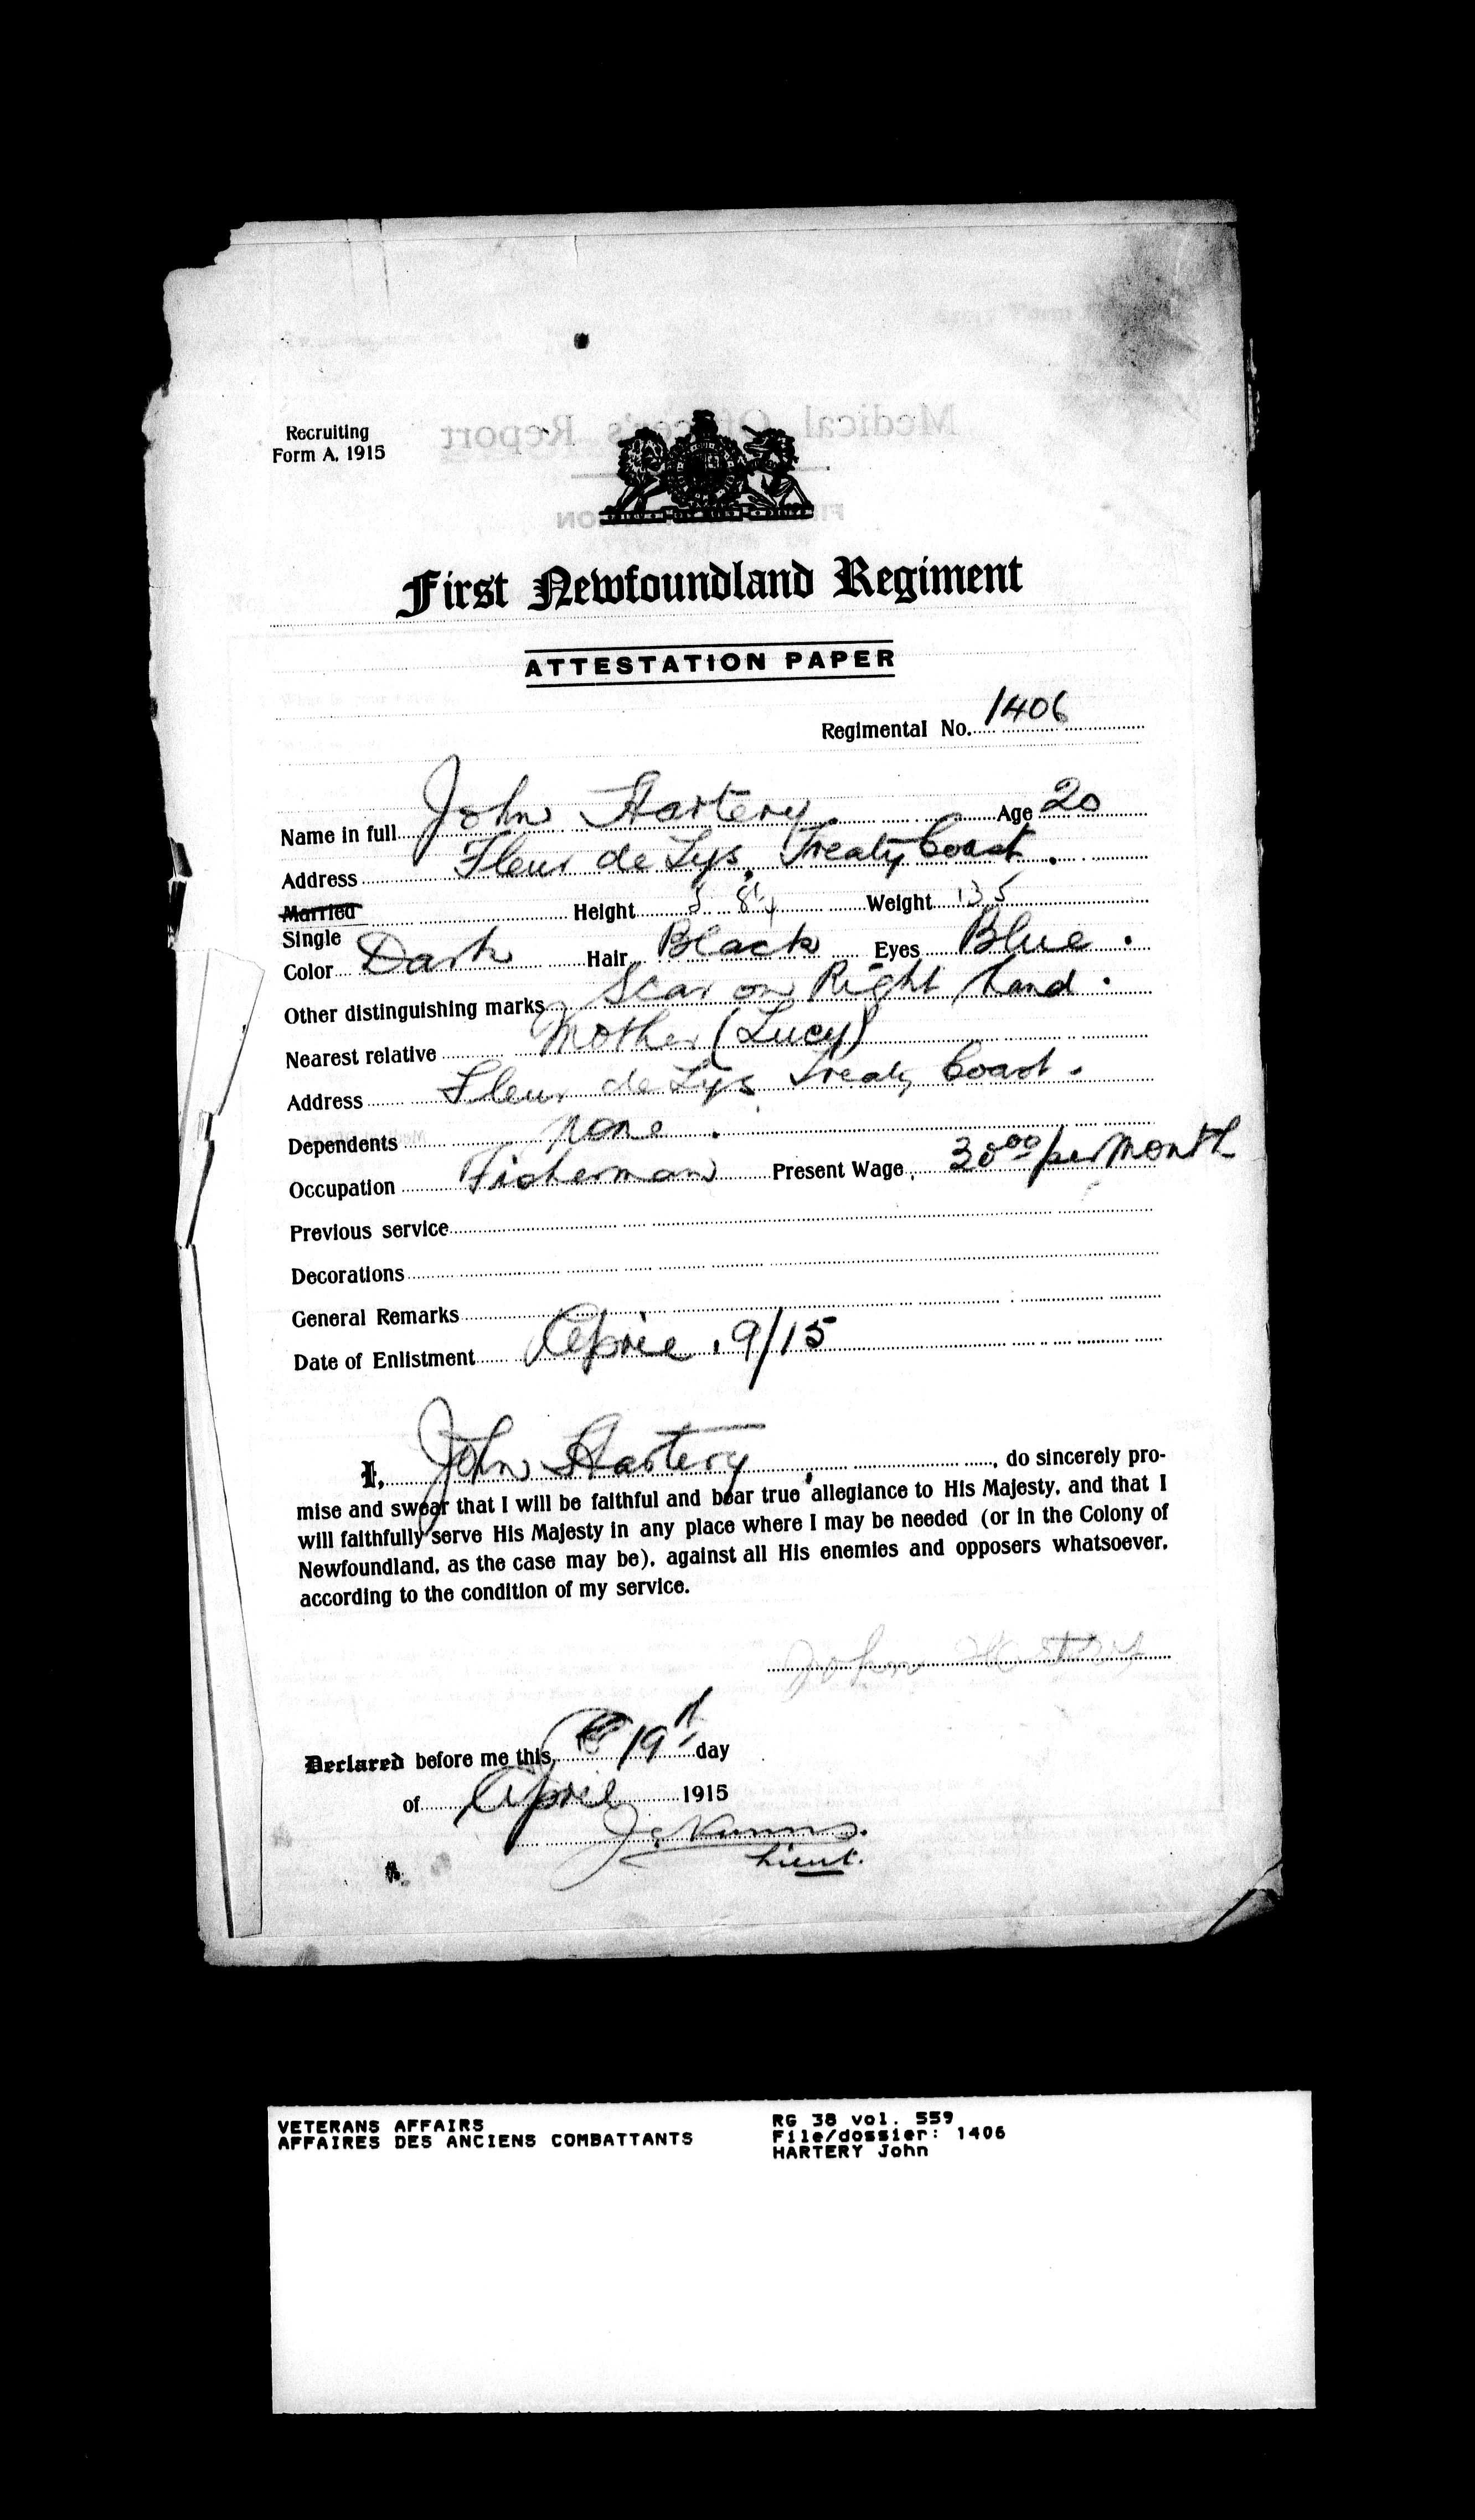 Recruiting
Form A, 1915
Medical Officer's Report
First Newfoundland Regiment
ATTESTATION PAPER
Regimental No. 1406
Name in full John Hartery Age 20
Address Fleur de Lys, Treaty Coast.
Married
Single
Height 5 8¼ Weight 135
Color Dark Hair Black Eyes Blue.
Other distinguishing marks Scar on Right hand.
Nearest relative Mother (Lucy)
Address Fleur de Lys Treaty Coast.
Dependents none.
Occupation Fisherman Present Wage 30 00 per month
Previous service
Decorations
General Remarks
Date of Enlistment April. 9/15
I, John Hartery, do sincerely pro-
mise and swear that I will be faithful and bear true allegiance to His Majesty, and that I
will faithfully serve His Majesty in any place where I may be needed (or in the Colony of
Newfoundland, as the case may be), against all His enemies and opposers whatsoever,
according to the condition of my service.
John Hartery
Declared before me this 19th day
of April 1915
Lieut.
VETERANS AFFAIRS
AFFAIRES DES ANCIENS COMBATTANTS
RG 38 vol. 559
File/dossier: 1406
HARTERY John